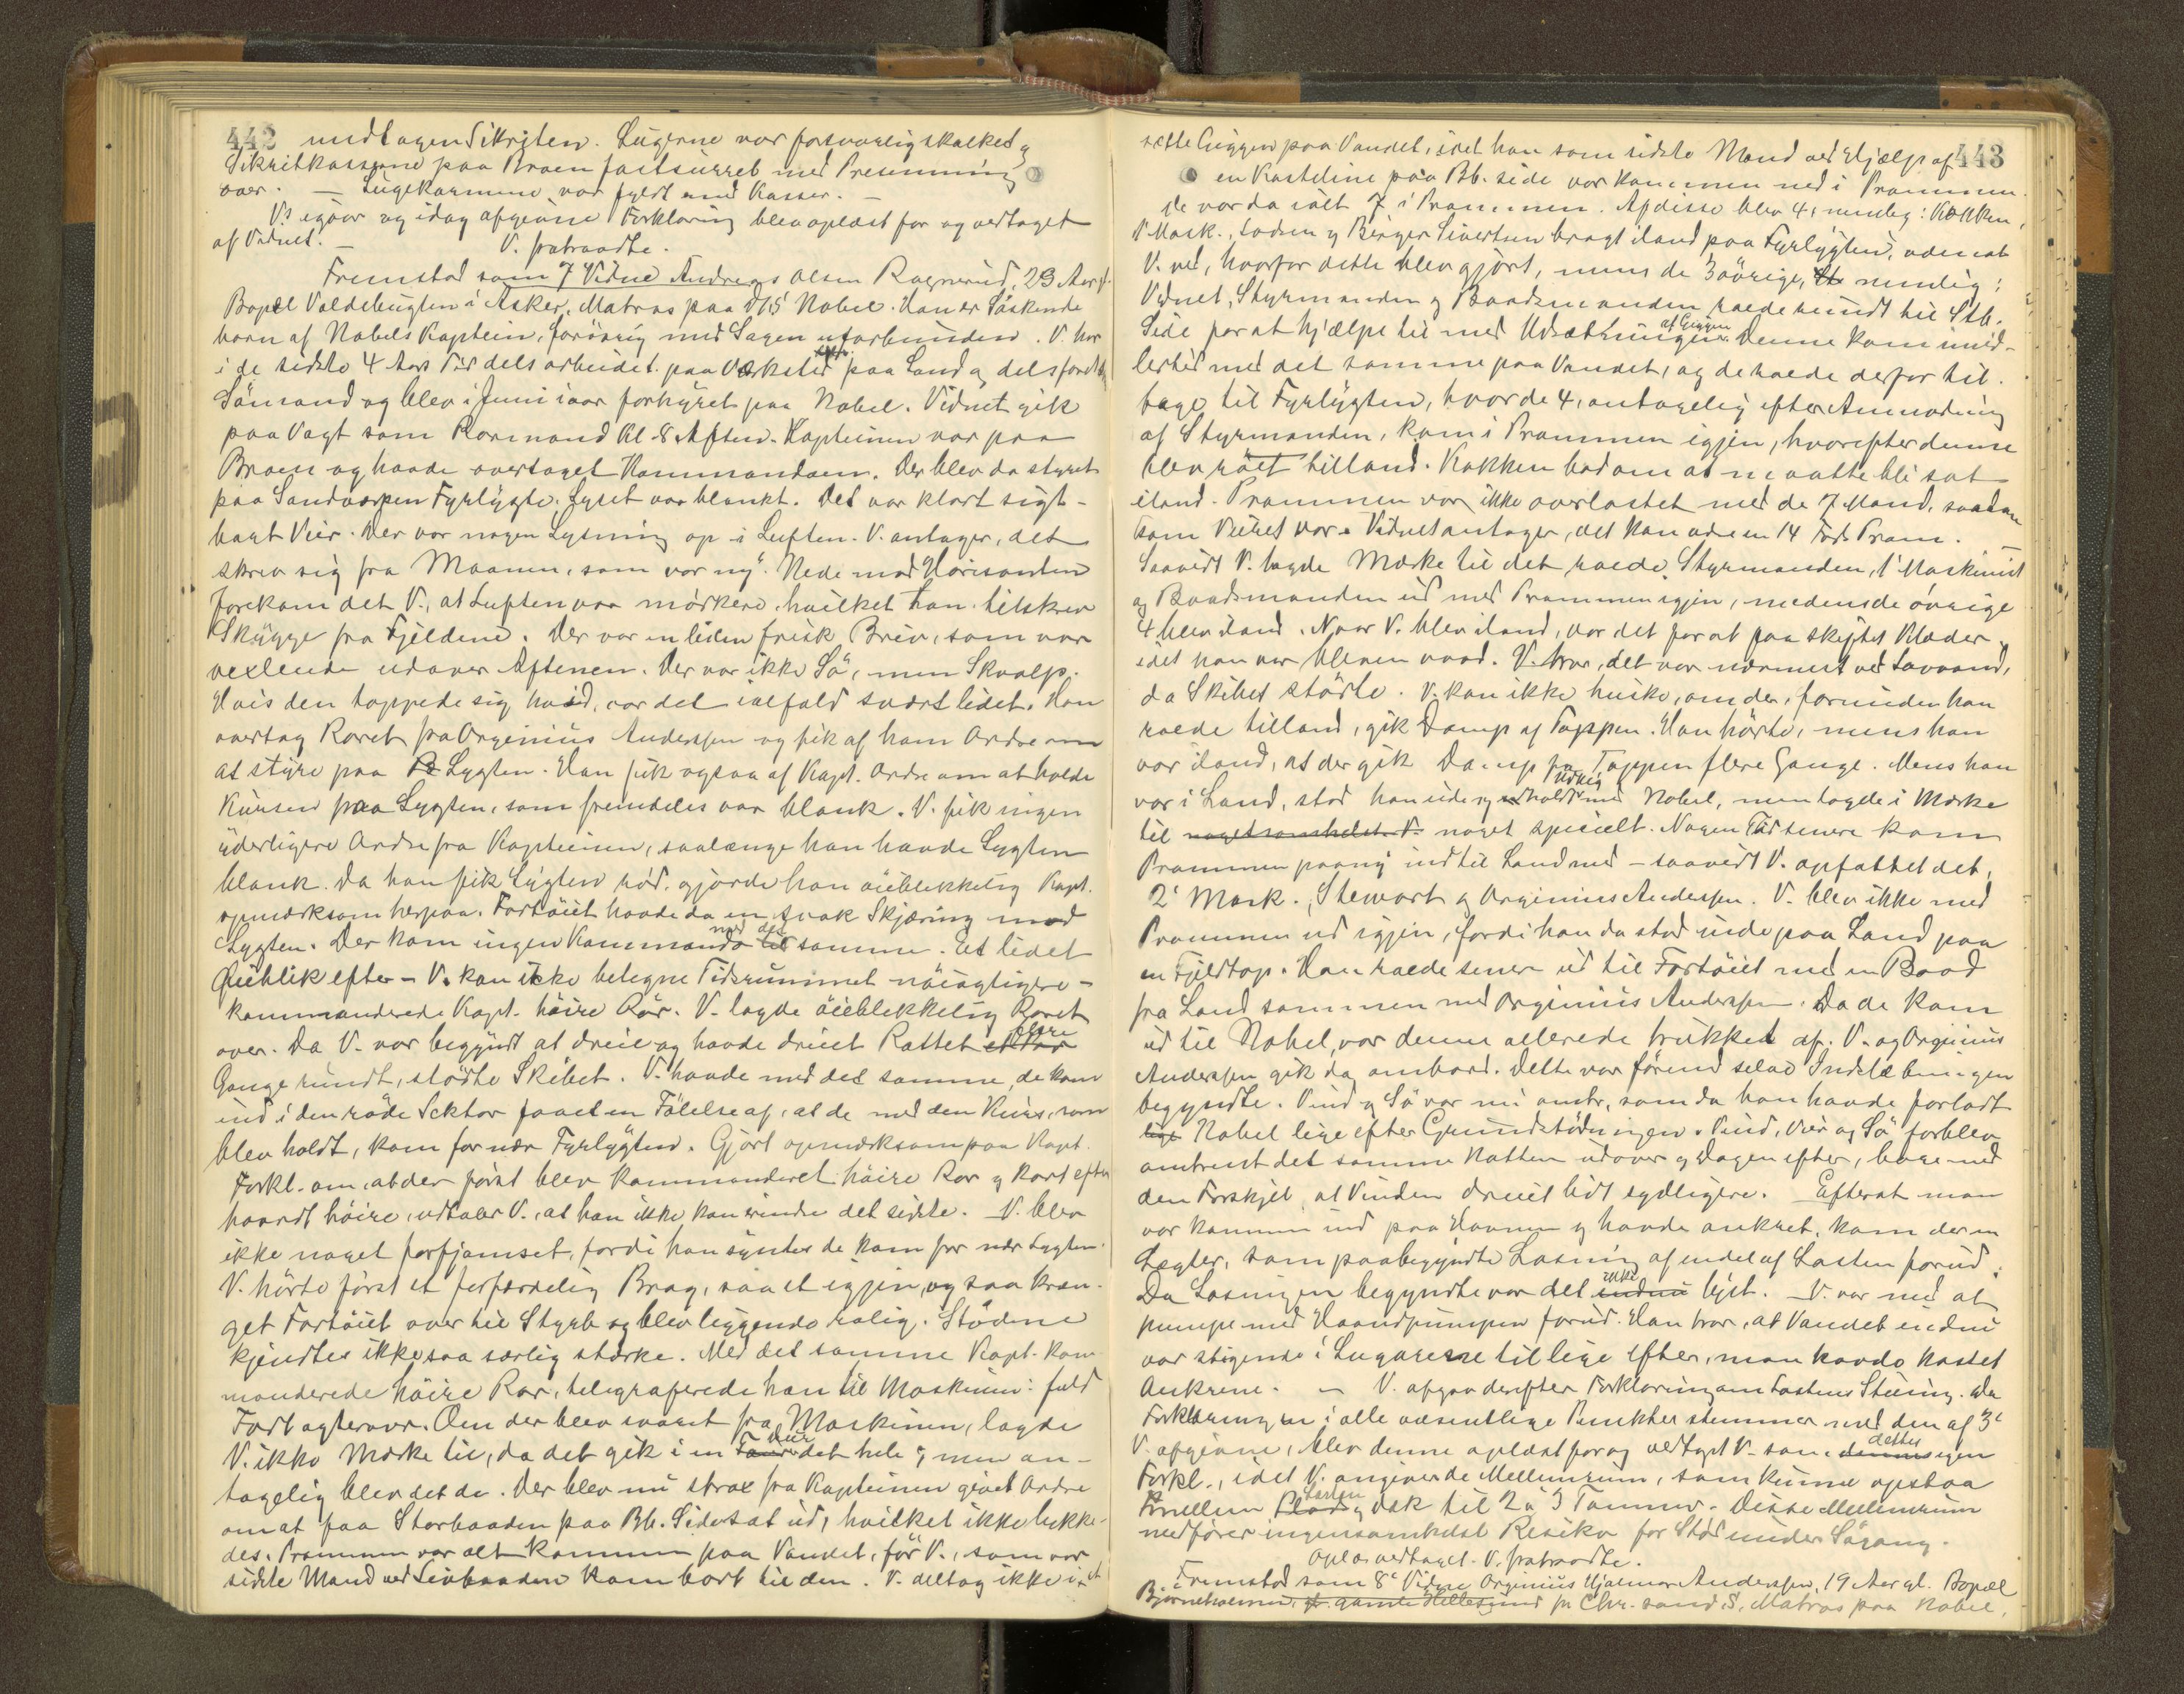 442 medtagen Sikriten. Lugerne var forsvarlig skalket og
Sikritkasserne paa Broen fastsurret med Presenning
over. — Lugekarmene var fyldt med Kasser. —
V's igaar og idag afgivne Forklaring blev oplæst for og vedtaget
af Vidnet. — V. fratraadte.
Fremstod som 7' Vidne Andreas Olsen Ragnerud, 23 Aar gl.
Bopæl Valdebugten i Asker, Matros paa D/S Nobel. Han er Søskende
barn af Nobels Kaptein, forøvrig med Sagen uforbunden. V. har
i de sidste 4 Aars Tid dels arbeidet paa Værksted paa Land og dels faret
Sömand og blev i Juni iaar forhyret paa Nobel. Vidnet gik
paa Vagt som Rormand Kl. 8 Aften. Kapteinen var paa
Broen og havde overtaget Kommandoen. Der blev da styret
paa Sandvarpen Fyrlygte. Lyset var blankt. Det var klart sigt-
bart Veir. Der var nogen Lysning op i Luften. V. antager, det
skrev sig fra Maanen, som var ny. Nede mod Horisonten
forekom det V., at Luften var mörkere, hvilket han tilskrev
Skygge fra Fjeldene. Der var en liden frisk Bris, som var
vexlende udover Aftenen. Der var ikke Sö, men Skvalp.
Hvis den toppede sig hvid, var det ialfald svært lidet. Han
overtog Roret fra Orginius Anderssen og fik af ham Ordre om
at styre paa Lygten. Han fik ogsaa af Kapt. Ordre om at holde
Kursen paa Lygten, som fremdeles var blank. V. fik ingen
yderligere Ordre fra Kapteinen, saalænge han havde Lygten
blank. Da han fik Lygten röd, gjorde han öieblikkelig Kapt.
opmærksom herpaa. Fartöiet havde da en svak Skjæring mod
Lygten. Der kom ingen Kommando med det samme. Et lidet
Öieblik efter – V. kan ikke betegne Tidsrummet nöiagtigere –
kommanderede Kapt. höire Rör. V. lagde öieblikkelig Roret
over. Da V. var begyndt at dreie og havde dreiet Rattet et Par flere
Gange rundt, stödte Skibet. V. havde med det samme, de kom
ind i den röde Sektor faaet en Fölelse af, at de med den Kurs, som
blev holdt, kom for nær Fyrlygten. Gjort opmærksom paa Kapt.
Forkl. om, at der först blev kommanderet höire Ror og kort efter
haardt höire, udtaler V., at han ikke kan erindre det sidste. V. blev
ikke noget forfjamset, fordi han syntes de kom for nær Lygten.
V. hörte först et forfærdelig Brag, saa et igjen, og saa kræn-
get Fartöiet over til Styrb og blev liggende rolig. Stödene
kjendtes ikke saa særlig stærke. Med det samme Kapt. kom-
manderede höire Ror, telegraferede han til Maskinen: fuld
Fart agterover. Om der blev svaret fra Maskinen, lagde
V. ikke Mærke til, da det gik i en det hele, men an-
tagelig blev det da. Der blev nu strax fra Kapteinen givet Ordre
om at faa Storbaaden paa Bb. Side sat ud, hvilket ikke lykke-
des. Prammen var alt kommen paa Vandet, för V., som var
sidste Mand ved Livbaaden kom bort til den. V. deltog ikke i at
443
sætte Giggen paa Vandet, idet han som sidste Mand ved Hjælp af
en Kasteline paa Bb. side var kommen ned i Prammen.
De var da ialt 7 i Prammen. Af disse blev 4, nemlig: Kokken,
1' Mask., Lodsen og Birger Sivertsen bragt iland paa Fyrlygten, uden at
V. ved, hvorfor dette blev gjort, mens de 3 övrige, nemlig:
Vidnet, Styrmanden og Baadsmanden roede rundt til Stb.
Side for at hjælpe til med Udsætningen af Giggen. Denne kom imid-
lertid med det samme paa Vandet, og de roede derfor til-
bage til Fyrlygten, hvor de 4, antagelig efter Anmodning
af Styrmanden, kom i Prammen igjen, hvorefter denne
blev röet tilland. Kokken bad om at maatte bli sat
iland. Prammen var ikke overlastet med de 7 Mand, saadan
som Veiret var. Vidnet antager, det kan være en 14 Fods Pram. —
Saavidt V. lagde Mærke til det roede Styrmanden, 1' Maskinist
og Baadsmanden ud med Prammen igjen, medens de övrige
4 blev iland. Naar V. blev iland, var det for at faa skiftet Klæder,
idet han var bleven vaad. V. tror, det var nærmest ved Lavvand,
da Skibet stödte. V. kan ikke huske, om der, forinden han
roede tilland, gik Damp af Toppen. Han hörte, mens han
var iland, at der gik Damp fra Toppen flere Gange. Mens han
var i Land, stod han ude og holdt udkig med Nobel, men lagde i Mærke
til noget somhelst. V. noget specielt. Nogen Tid senere kom
Prammen paany ind til Land med – saavidt V. opfattet det,
2' Mask., Stewart og Orginius Anderssen. V. blev ikke med
Prammen ud igjen, fordi han da stod inde paa Land paa
en Fjeldtop. Han roede senere ud til Fartöiet med en Baad
fra Land sammen med Orginius Anderssen. Da de kom
ud til Nobel, var denne allerede trukket af. V. og Orginius
Anderssen gik da ombord. Dette var förend selve Indslæbningen
begyndte. Vind og Sö var nu omtr. som da han havde forladt
lige Nobel lige efter Grundstödningen. Vind, Veir og Sö forblev
omtrent det samme Natten udover og Dagen efter, bare med
den Forskjel, at Vinden dreiet lidt sydligere. Efterat man
var kommen ind paa Havnen og havde ankret, kom der en
Lægter, som paabegyndte Losning af endel af Lasten forud.
Da Losningen begyndte var det endnu ikke lyst. V. var med at
pumpe med Haandpumpen forud. Han tror, at Vandet endnu
var stigende i Lugarerne til lige efter, man havde kastet
Ankrene. — V. afgav derefter Forklaring om Lastens Stuing. Da
Forklaringen i alle væsentlige Punkter stemmer med den af 3'
V. afgivne, blev denne oplæst for og vedtaget V. som dennes dettes egen
Forkl., idet V. angiver de Mellemrum, som kunne opstaa
mellem Lasten og Dæk til 2 à 3 Tommer. Disse Mellemrum
medfører ingensomhelst Risiko for Stöd under Sögang.
Opl. og vedtaget. V. fratraadte.
Fremstod som 8' Vidne Orginius Hjalmar Anderssen, 19 Aar gl. Bopæl
Bjørneholmen, pr. gamle Hellesund pr Chr.sand S., Matros paa Nobel,